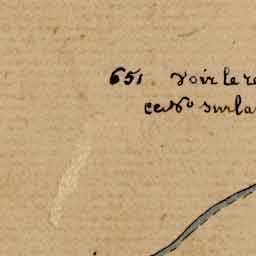 651 Voir le re
ce No sur la